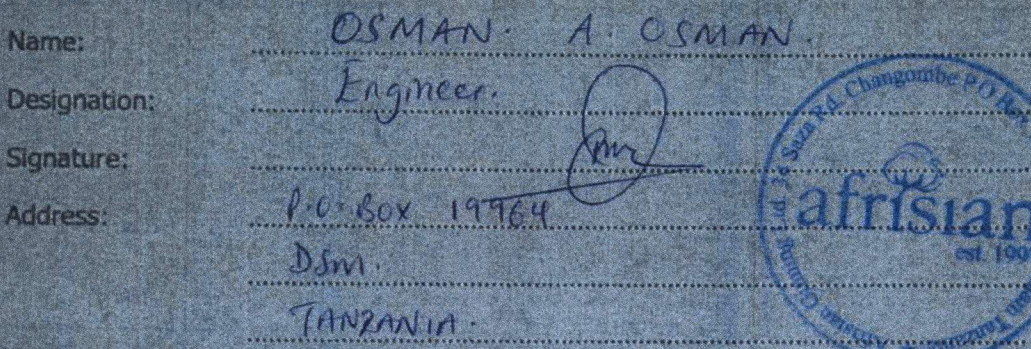 Name: OSMAN. A. OSMAN.
Designation: Engineer.
Signature:
Address: P.O. BOX 19964
DSM.
TANZANIA.
Suza Rd. Changombe P.O Box
afrisian
est. 190